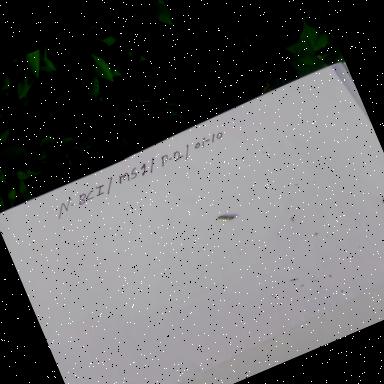 N. BCI/MS-1/P-2/01-10